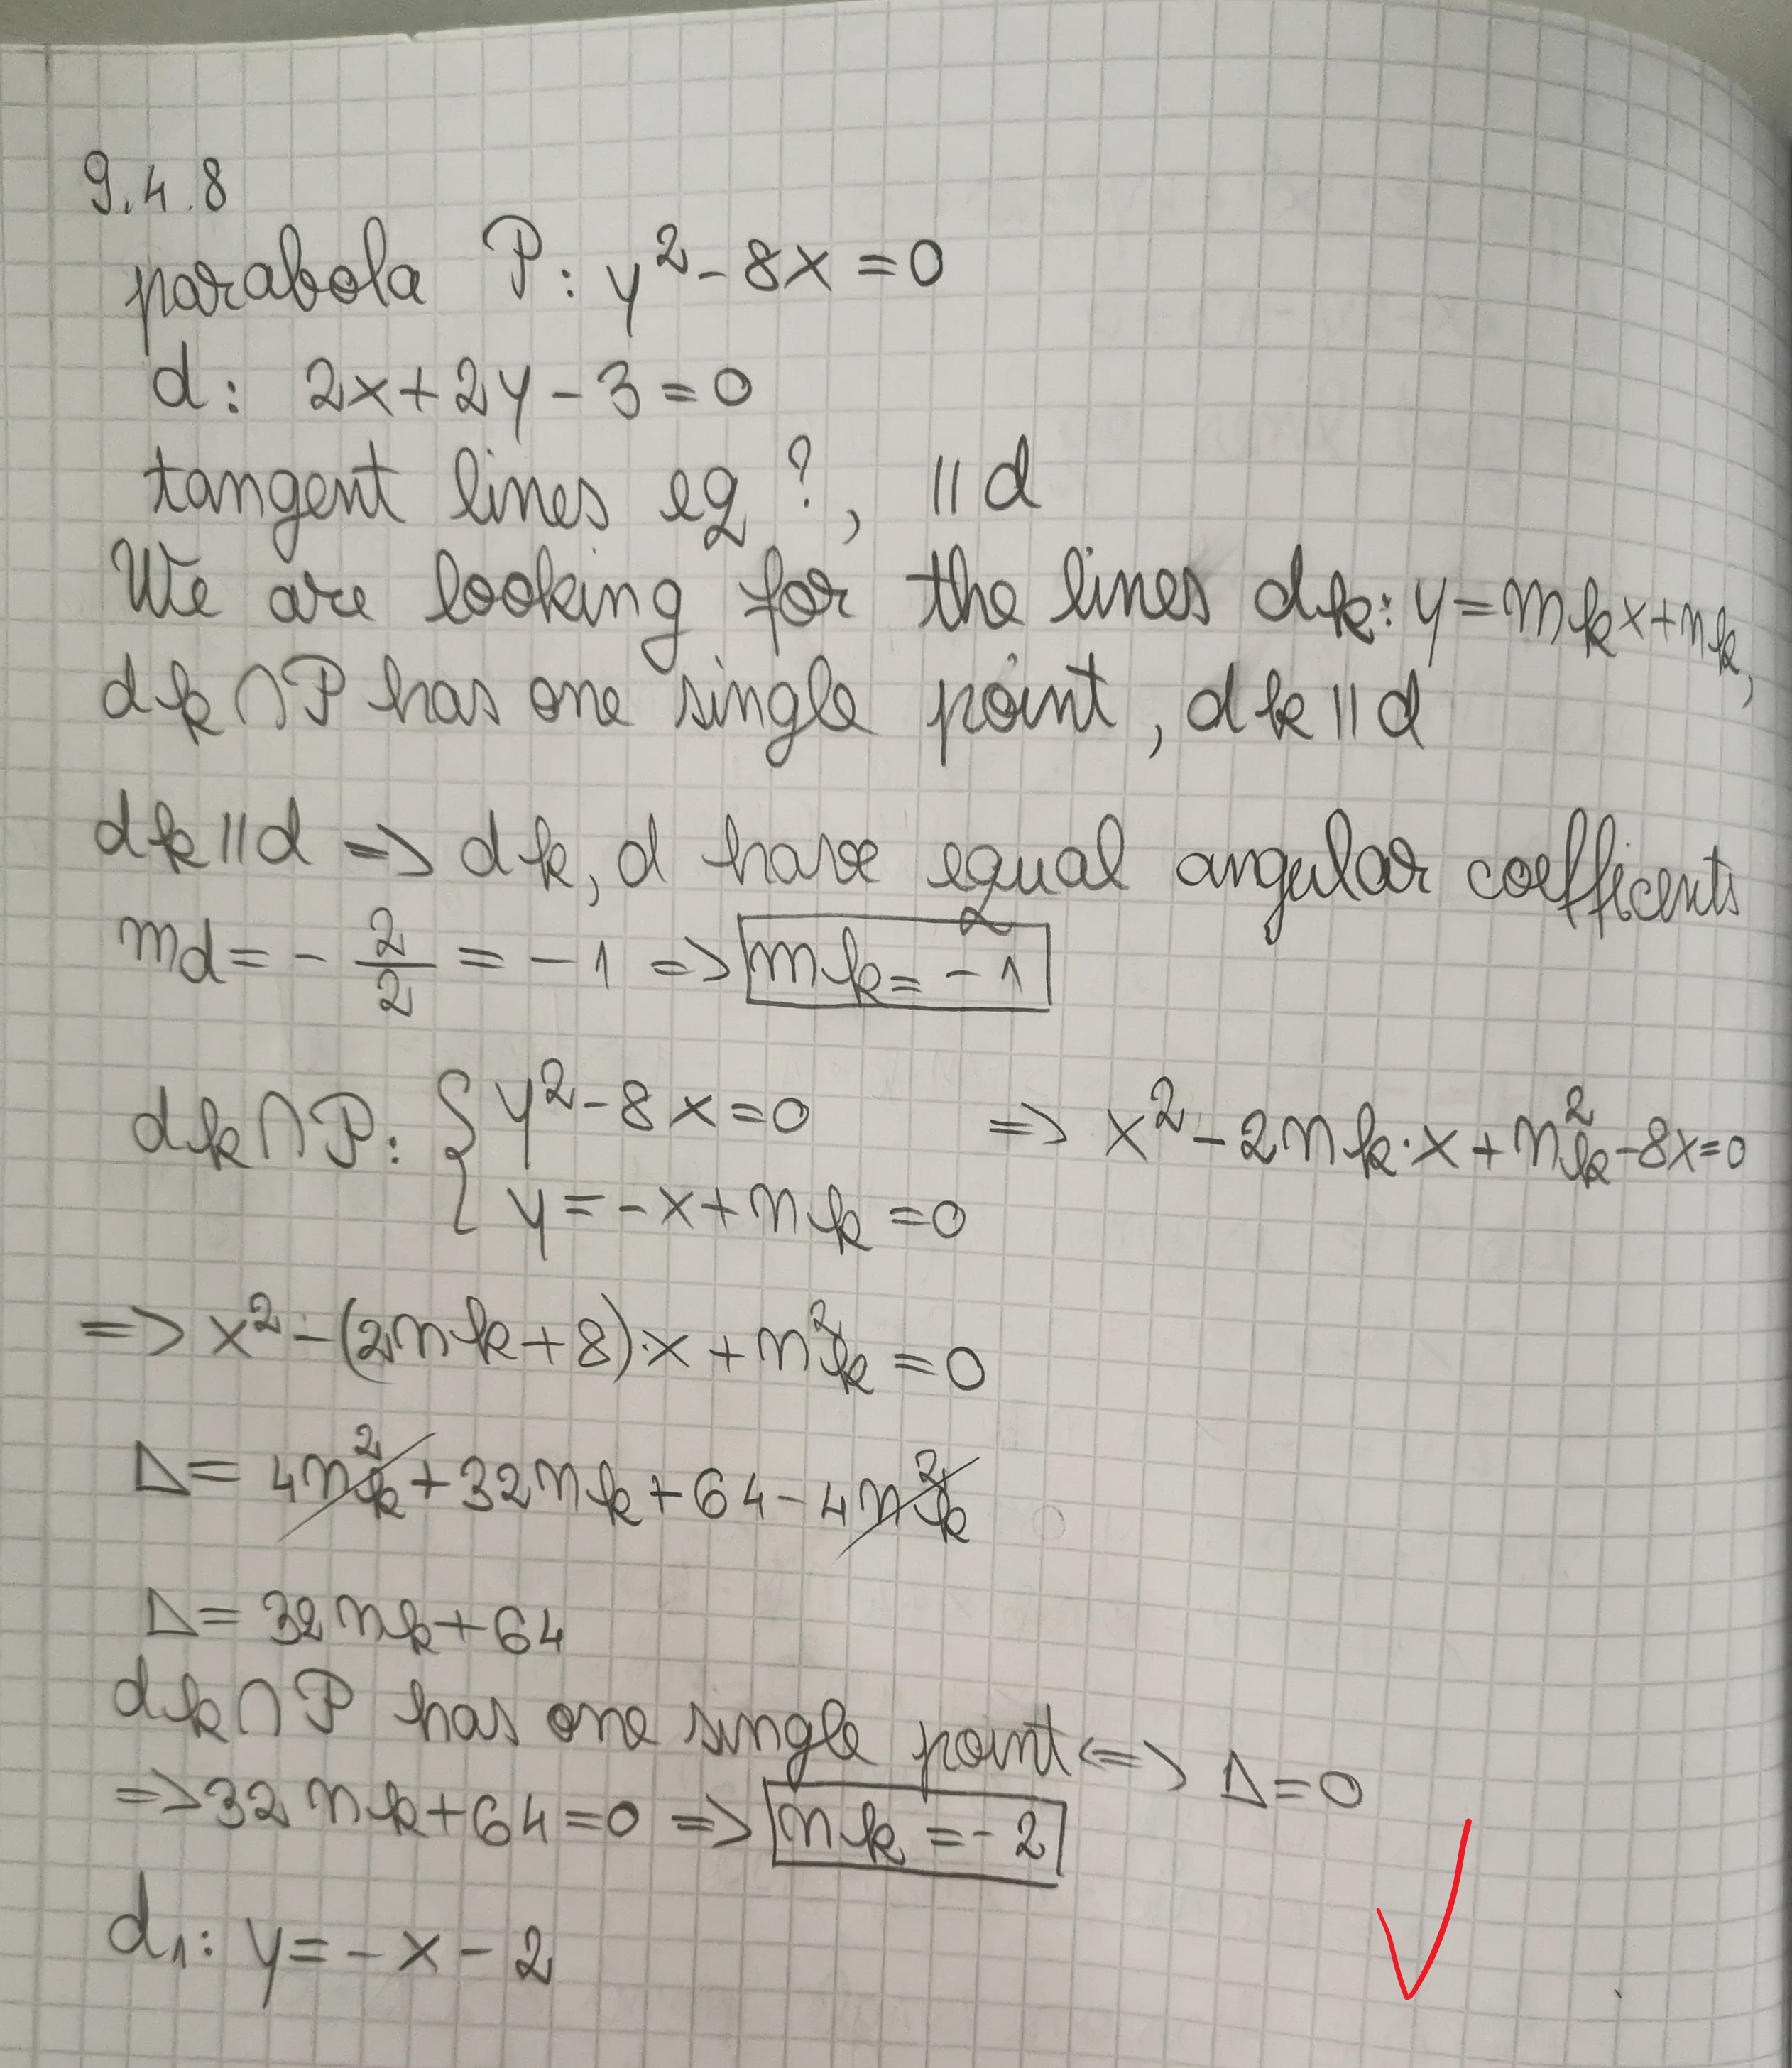 9.4.8
parabola P: y²-8x=0
d: 2x+2y-3=0
tangent lines eq ?, || d
We are looking for the lines dk: y=mkx+nk,
dk∩P has one single point, dk||d
dk||d => dk, d have equal angular coefficents
md = - 2/2 = -1 => mk=-1
dk∩P: { y²-8x=0 => x²-2nk·x+nk²-8x=0
y=-x+nk=0
=> x²-(2nk+8)·x+nk²=0
Δ= 4nk²+32nk+64-4nk²
Δ= 32nk+64
dk∩P has one single point <=> Δ=0
=>32nk+64=0 => nk=-2
d₁: y=-x-2